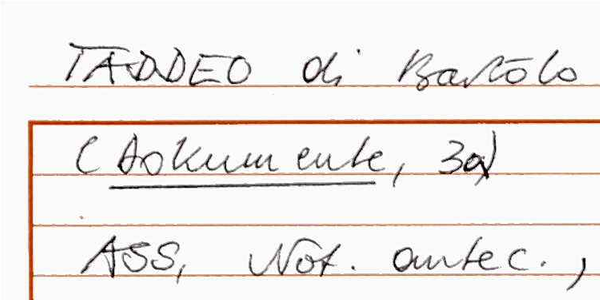 TADDEO di Bartolo
(Dokumente, 3a)
ASS, Not. antec.,